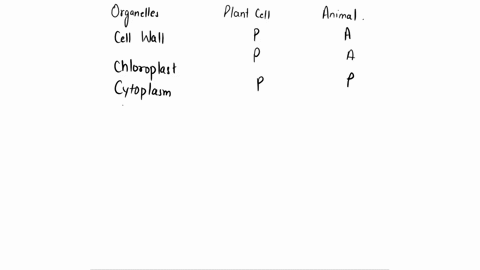 Organelles Plant Cell Animal.
Cell Wall P A
Chloroplast P A
Cytoplasm P P